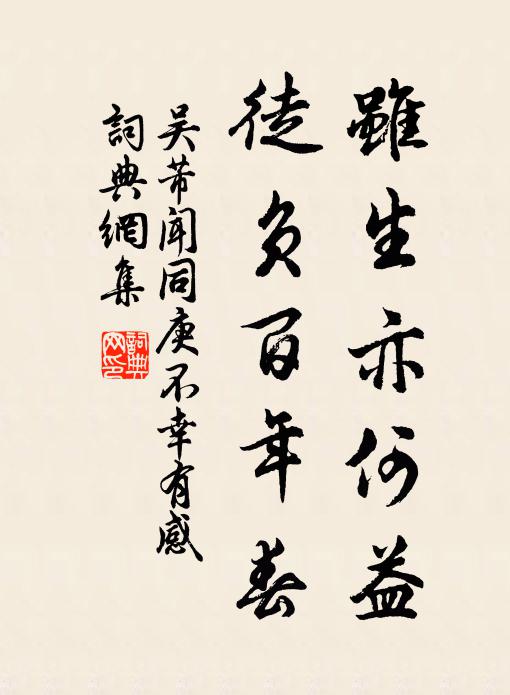 雖生亦何益
徒負百年春
吴芾聞同庚不幸有感
詞典網集
詞典
网印